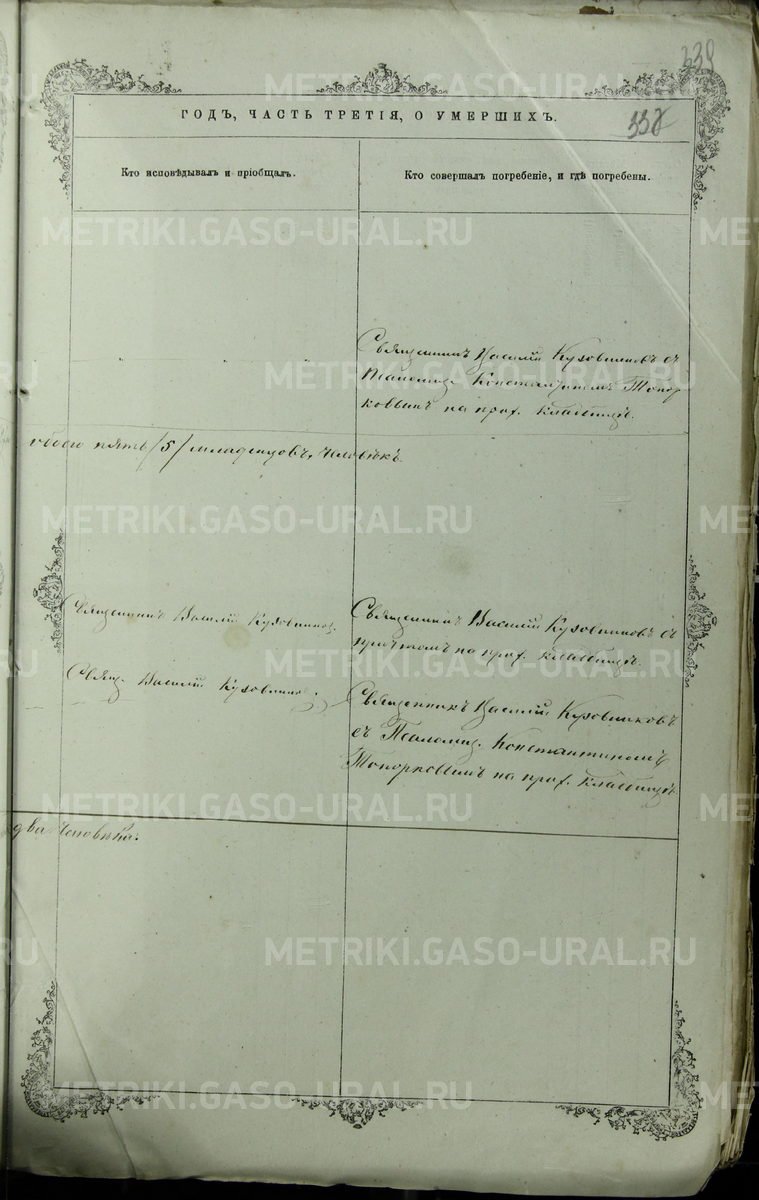 339
ГОДЪ, ЧАСТЬ ТРЕТІЯ, О УМЕРШИХЪ.
338
Кто исповѣдывалъ и пріобщалъ.
Кто совершалъ погребеніе, и гдѣ погребены.
Священникъ Василій Кузовниковъ съ
Псаломщ. Константиномъ Топор
ковымъ на прох. кладбищѣ.
обоего пять /5/ младенцовъ, человѣкъ
Священникъ Василій Кузовниковъ.
Священникъ Василій Кузовниковъ съ
причтомъ на прох. кладбищѣ.
Свящ. Василій Кузовниковъ.
Священникъ Василій Кузовниковъ
съ Псаломщ. Константиномъ
Топорковымъ на прох. кладбищѣ
два человѣка.
METRIKI.GASO-URAL.RU